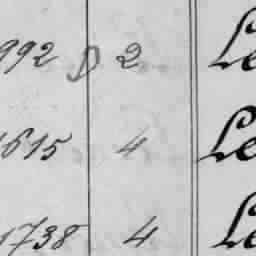 992 D 2 Le
1615 4 Le
1738 4 Le